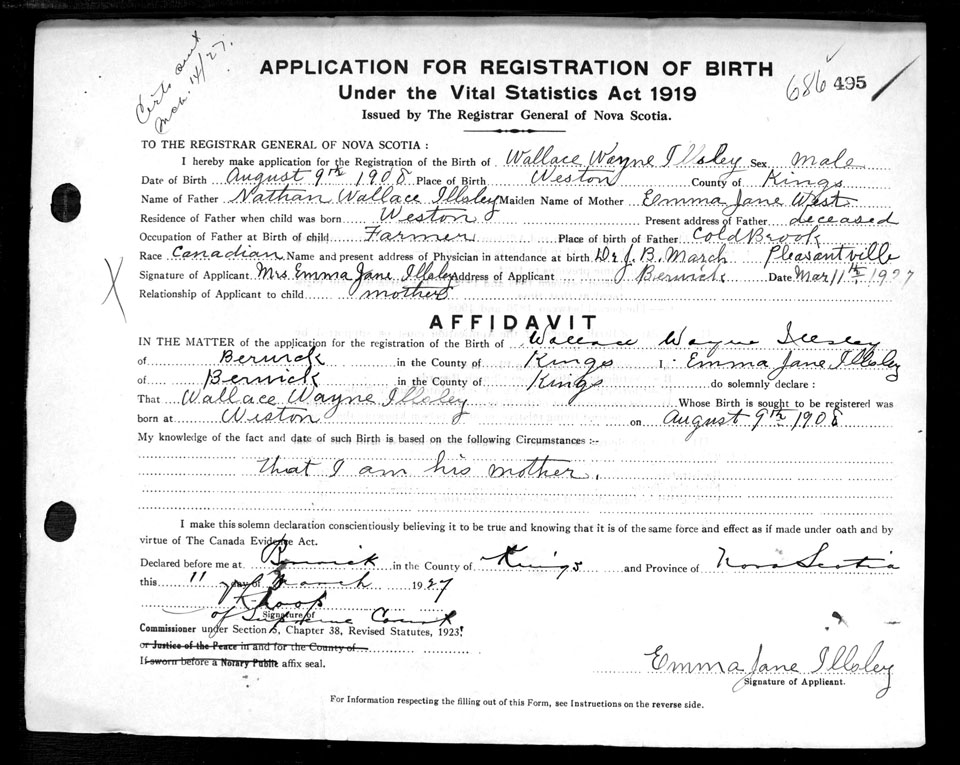 Certs sent
Mch. 14/27.
APPLICATION FOR REGISTRATION OF BIRTH
686 495
Under the Vital Statistics Act 1919
Issued by The Registrar General of Nova Scotia.
TO THE REGISTRAR GENERAL OF NOVA SCOTIA :
I hereby make application for the Registration of the Birth of Wallace Wayne Illsley Sex male
Date of Birth August 9th 1908 Place of Birth Weston County of Kings
Name of Father Nathan Wallace Illsley Maiden Name of Mother Emma Jane West
Residence of Father when child was born Weston Present address of Father deceased
Occupation of Father at Birth of child Farmer Place of birth of Father Cold Brook
Race Canadian Name and present address of Physician in attendance at birth Dr J. B. March Pleasantville
Signature of Applicant Mrs Emma Jane Illsley Address of Applicant Berwick Date Mar 11th 1927
Relationship of Applicant to child mother
AFFIDAVIT
IN THE MATTER of the application for the registration of the Birth of Wallace Wayne Illsley
of Berwick in the County of Kings I Emma Jane Illsley
of Berwick in the County of Kings do solemnly declare :
That Wallace Wayne Illsley Whose Birth is sought to be registered was
born at Weston on August 9th 1908
My knowledge of the fact and date of such Birth is based on the following Circumstances :--
that I am his mother.
I make this solemn declaration conscientiously believing it to be true and knowing that it is of the same force and effect as if made under oath and by
virtue of The Canada Evidence Act.
Declared before me at Berwick in the County of Kings and Province of Nova Scotia
this 11 day of March 1927
Signature of
of Supreme Court
Commissioner under Section 5, Chapter 38, Revised Statutes, 1923.
or Justice of the Peace in and for the County of
If sworn before a Notary Public affix seal.
Emma Jane Illsley
Signature of Applicant.
For Information respecting the filling out of this Form, see Instructions on the reverse side.